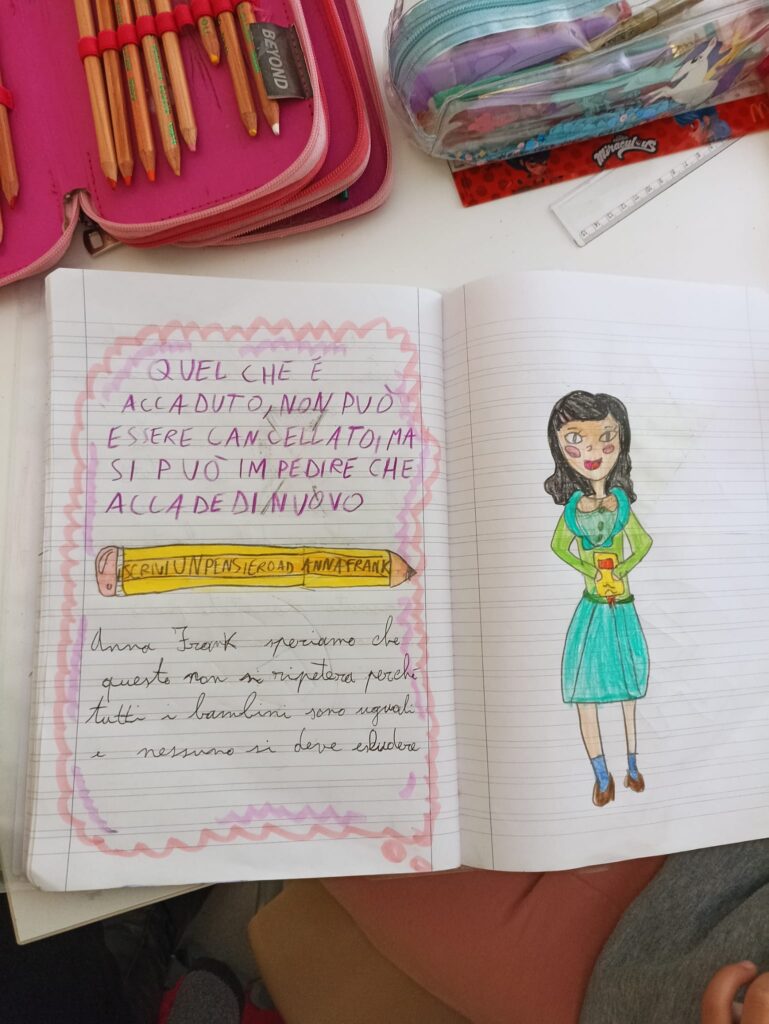 BEYOND
Miraculous
QUEL CHE É
ACCADUTO, NON PUÒ
ESSERE CANCELLATO, MA
SI PUÒ IMPEDIRE CHE
ACCADE DI NUOVO
SCRIVI UN PENSIERO AD ANNA FRANK
Anna Frank speriamo che
questo non si ripetera perchè
tutti i bambini sono uguali
e nessuno si deve esludere